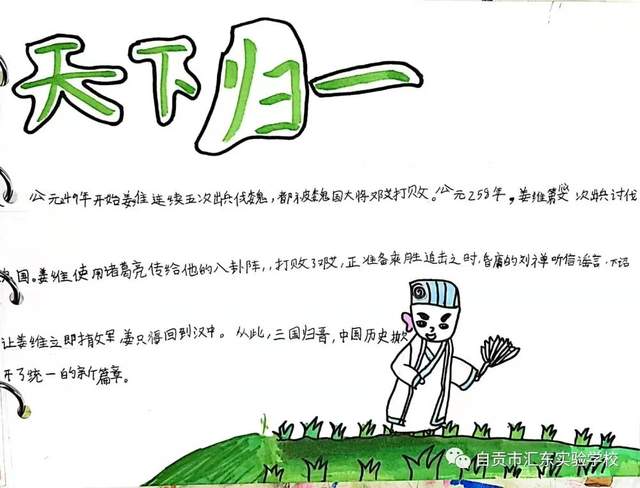 天下归一
公元249年开始姜维连续五次出兵伐魏，都被魏国大将邓艾打败。公元258年，姜维第 次出兵讨伐
国。姜维使用诸葛亮传给他的八卦阵，，打败了邓艾，正准备乘胜追击之时，昏庸的刘禅听信谣言，下诏
让姜维立即撤军姜只得回到汉中。从此，三国归晋，中国历史掀
开了统一的新篇章。
自贡市汇东实验学校